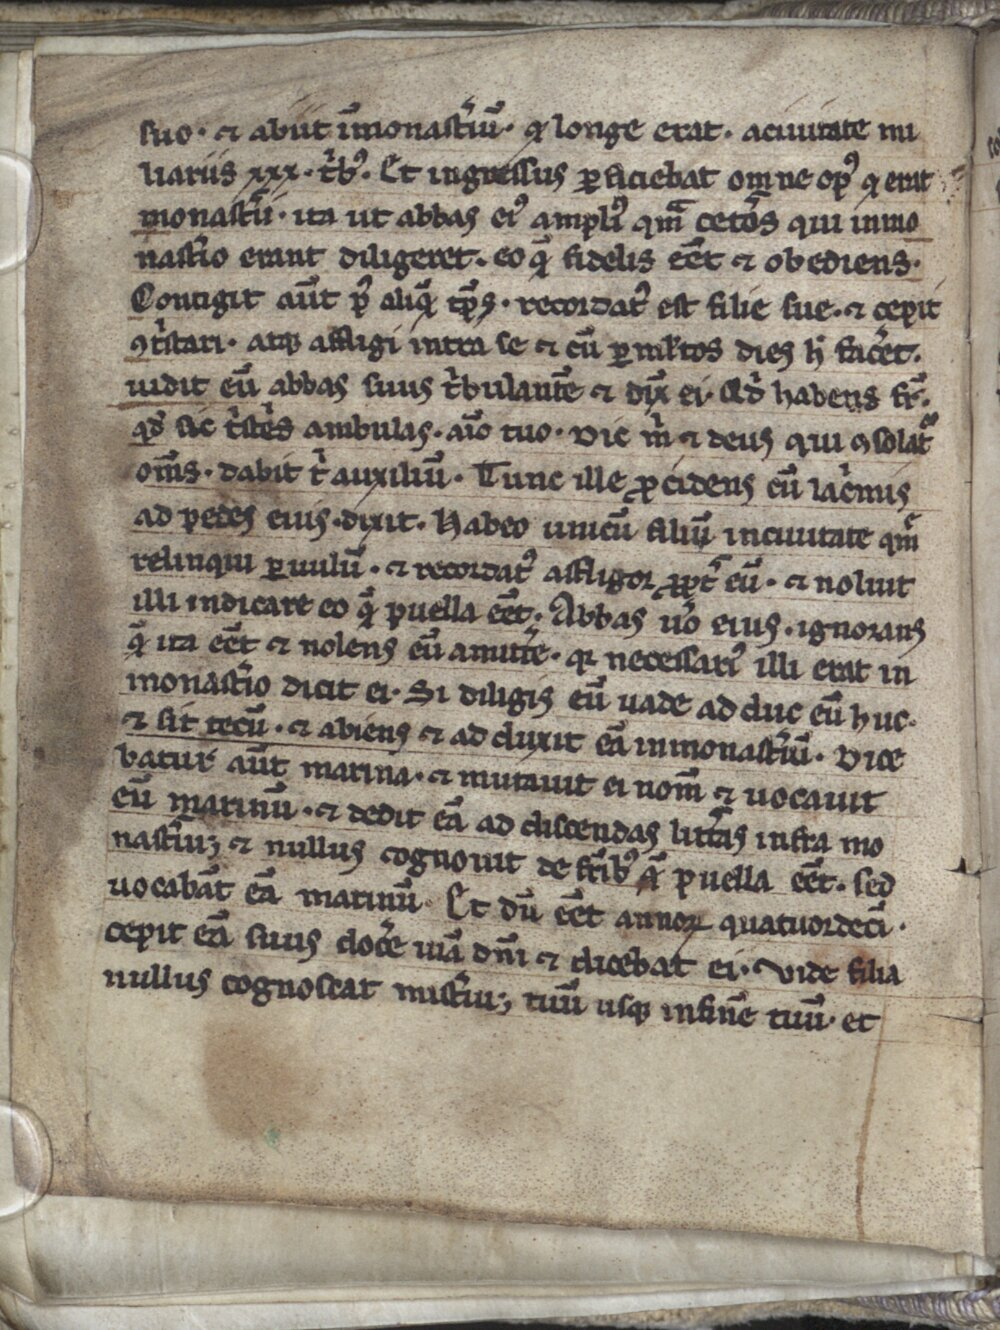 suo · ⁊ abiit ĩmonast̃iũ · q̃ longe erat · aciuitate mi
liariis xxx · t'bꝰ · Et ingressus ꝑficiebat omne opꝰ q̃ erat
monast̃ii · ita ut abbas eiꝰ ampliꝰ qm̃ cet̃os qui inmo
nast̃io erant diligeret · eo q̃ fidelis eẽt ⁊ obediens ·
Contigit aũt p̃ aliq̃ tp̃s · recordatꝰ est filie sue · ⁊ cepit
ꝯt'stari · atqꝫ affligi intra se ⁊ cũ ꝑ ml̃tos dies h̃ fac̃et ·
uidit eũ abbas suus t'bulantẽ ⁊ dix̃ ei · Qd' habens fr̃ ·
qd' sic t'stẽs ambulas · aĩo tuo · Dic m' ⁊ deus qui ꝯsolat᷑
om̃s · dabit t' auxiliũ · Tunc ille ꝓcidens cũ lac'mis
ad pedes eius · dixit · Habeo unicũ filiũ inciuitate qm̃
relinqui ꝑuulũ · ⁊ recordatꝰ affligor ꝓpt̃ eũ · ⁊ noluit
illi indicare eo q̃ puella eẽt · Abbas ũo eius · ignorans
q̃ ita eẽt ⁊ nolens eũ amitt̃e · qꝛ necessariꝰ illi erat in
monast̃io dicit ei · Si diligis eũ uade adduc eũ huc ·
⁊ sit tecũ · ⁊ abiens ⁊ adduxit eã inmonast̃iũ · Dice
batur aũt marina · ⁊ mutauit ei nom̃ ⁊ uocauit
eũ marinũ · ⁊ dedit eã ad discendas litt̃as infra mo
nast̃iuꝫ ⁊ nullus cognouit de fr̃ibꝰ q̃ puella eẽt · sed
uocabãt eã marinũ · Et dũ eẽt annoꝝ quatuordecĩ ·
cepit eã suus doc̃e uiã dñi ⁊ dicebat ei · Vide filia
nullus cognoscat mist̃iuꝫ tuũ usqꝫ infinẽ tuũ · et